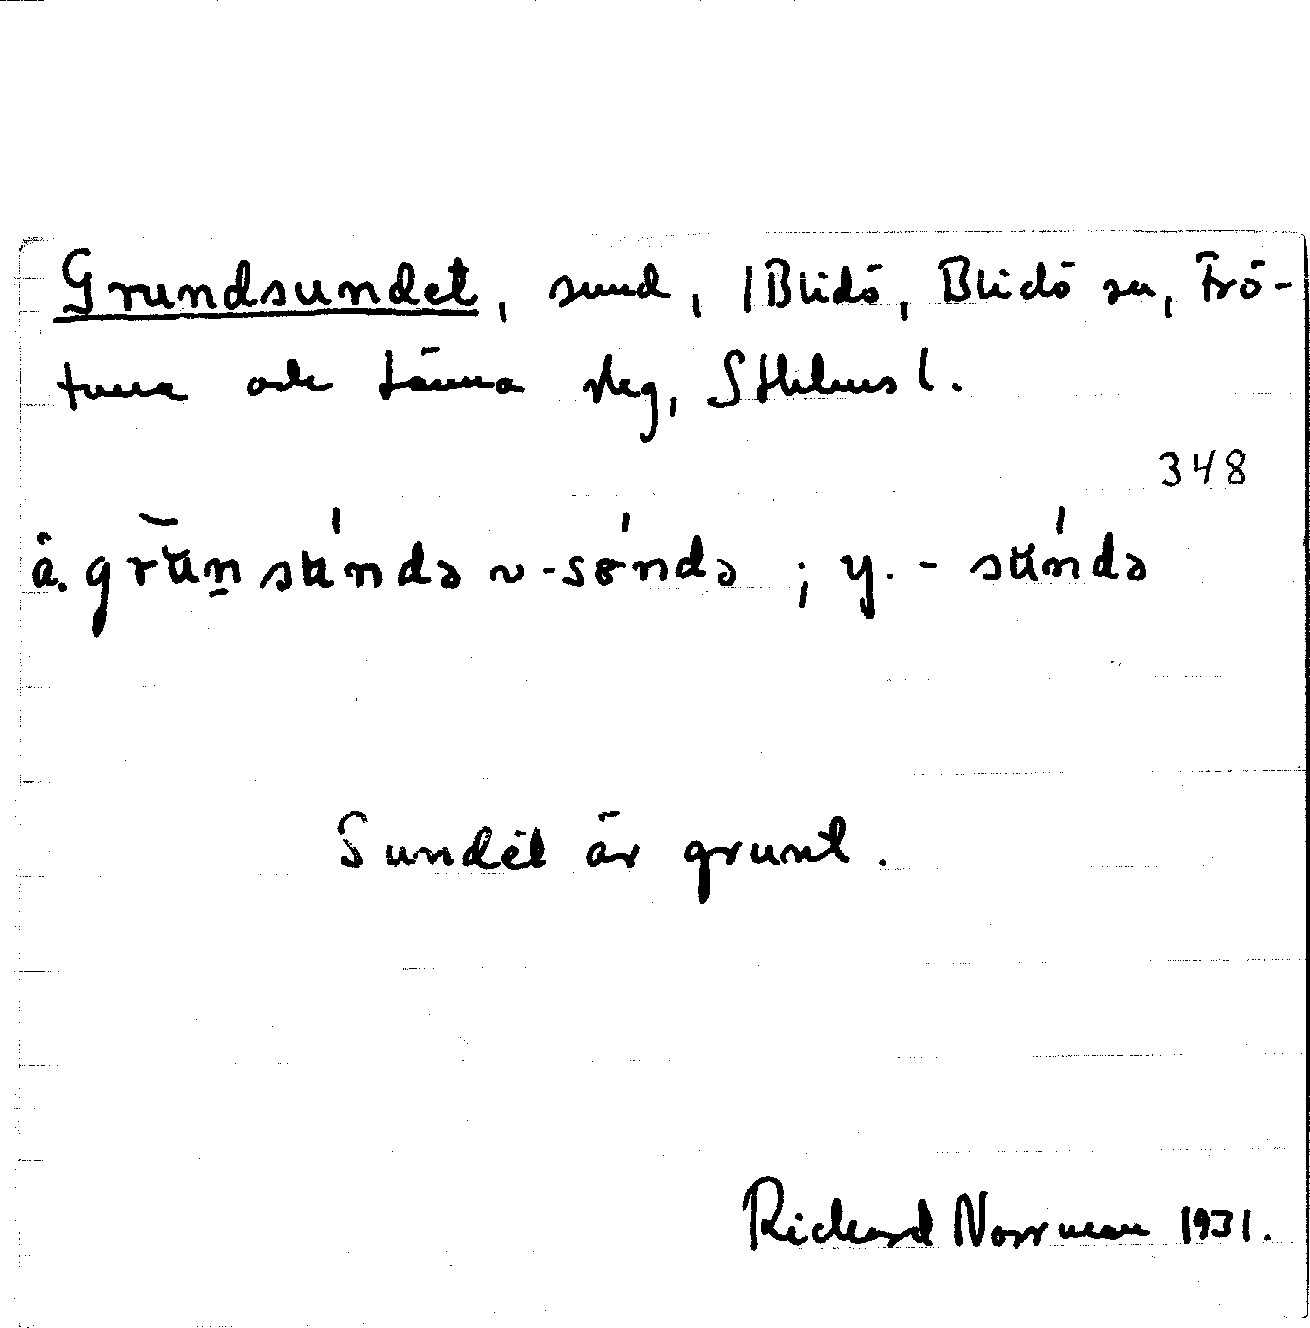 Grundsundet, sund, i Blidö, Blidö sn, Frö-
tuna och Länna skg, Sthlms l.
348
ä. gru̇nsu̇ndə ~ -sɵndə ; y. - su̇ndə
Sundet är grunt.
Rickard Norrman 1931.